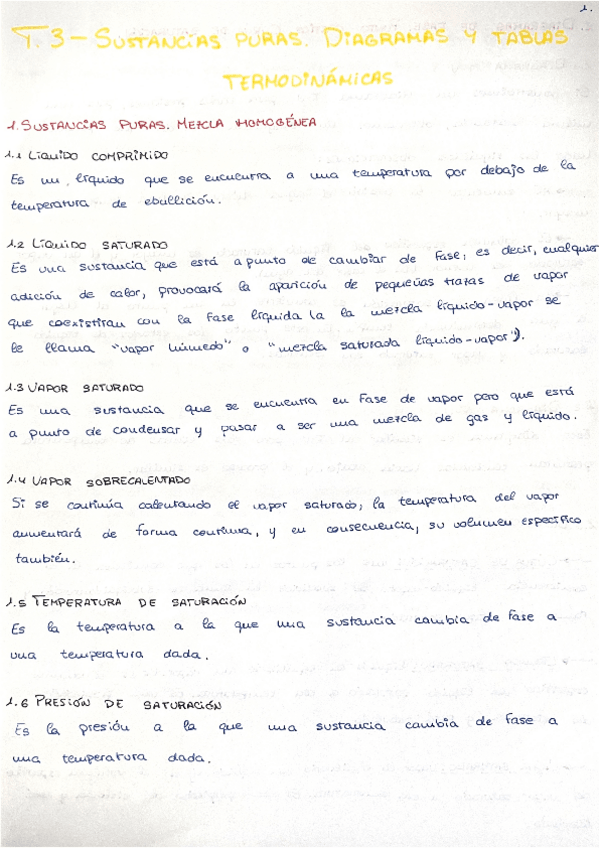 1.
T.3 - SUSTANCIAS PURAS. DIAGRAMAS Y TABLAS
TERMODINÁMICAS
1. SUSTANCIAS PURAS. MEZCLA HOMOGÉNEA
1.1 LÍQUIDO COMPRIMIDO
Es un líquido que se encuentra a una temperatura por debajo de la
temperatura de ebullición.
1.2 LÍQUIDO SATURADO
Es una sustancia que está a punto de cambiar de fase; es decir, cualquier
adición de calor, provocará la aparición de pequeñas trazas de vapor
que coexistirán con la fase líquida (a la mezcla líquido-vapor se
le llama "vapor húmedo" o "mezcla saturada líquido-vapor").
1.3 VAPOR SATURADO
Es una sustancia que se encuentra en fase de vapor pero que está
a punto de condensar y pasar a ser una mezcla de gas y líquido.
1.4 VAPOR SOBRECALENTADO
Si se continúa calentando el vapor saturado, la temperatura del vapor
aumentará de forma continua, y en consecuencia, su volumen específico
también.
1.5 TEMPERATURA DE SATURACIÓN
Es la temperatura a la que una sustancia cambia de fase a
una temperatura dada.
1.6 PRESIÓN DE SATURACIÓN
Es la presión a la que una sustancia cambia de fase a
una temperatura dada.